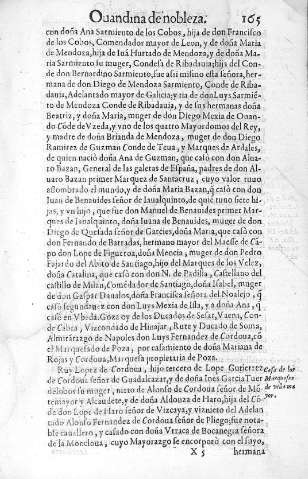 Ouandina de nobleza. 165
con doña Ana Sarmiento de los Cobos, hija de don Francisco
de los Cobos, Comendador mayor de Leon, y de doña Maria
de Mendoza, hija de Iuã Hurtado de Mendoza, y de doña Ma
ria Sarmiento su muger, Condesa de Ribadauia, hija del Con-
de don Bernardino Sarmiento, fue assi mismo esta señora, her-
mana de don Diego de Mendoza Sarmiento, Conde de Riba-
dauia, Adelantado mayor de Galicia, y tia de don Luys Sarmiẽ-
to de Mendoza Conde de Ribadauia, y de sus hermanas doña
Beatriz, y doña Maria, muger de don Diego Mexia de Ouan-
do Cõde de Vzeda, y vno de los quatro Mayordomos del Rey,
y madre de doña Brianda de Mendoza, muger de don Diego
Ramirez de Guzman Conde de Teua, y Marques de Ardales,
de quien nació doña Ana de Guzman, que casò con don Alua-
ro Bazan, General de las galeras de España, padres de don Al-
uaro Bazan primer Marques de Santacruz, cuyo valor tuuo
assombrado el mundo, y de doña Maria Bazan, q̃ casó con don
Iuan de Benauides señor de Iaualquinto, de quie tuuo siete hi-
jas, y vn hijo, que fue don Manuel de Benauides primer Mar-
ques de Iaualquinto, doña Iuana de Benauides, muger de don
Diego de Quesada señor de Garcies, doña Maria, que casó con
don Fernando de Barradas, hermano mayor del Maesse de Cã-
po don Lope de Figueroa, doña Mencia, muger de don Pedro
Fajardo del Abito de Santiago, hijo del Marques de los Velez,
doña Catalina, que casó con don N. de Padilla, Castellano del
castillo de Milan, Comẽdador de Santiago, doña Isabel, muger
de don Gaspar Daualos, doña Francisca señora del Nolejo, q̃
casó con don Luys Mexia de Isla, y a doña Ana, q̃
casó en Vbeda. Goza oy de los Ducados de Sesa, Vaena, Con-
de Cabra, Vizcondado de Hinajar, Rute y Ducado de Soma,
Almirãtazgo de Napoles don Luys Fernandez de Cordoua, cõ
el Marquesado de Poza, por casamiento de doña Mariana de
Rojas y Cordoua, Marquesa propietaria de Poza.
Ruy Lopez de Cordoua, hijo tercero de Lope Gutierrez
de Cordoua señor de Guadalcazar, y de doña Ines Garcia
de lobos su muger, nieto de Alonso de Cordoua señor de Mõ
temayor y Alcaudete, y de doña Aldonza de Haro, hija del Cõ-
de don Lope de Haro señor de Vizcaya, y viznieto del Adelan-
tado Alonso Fernandez de Cordoua señor de Pliego; fue nota-
ble cauallero, y casado con doña Vrraca de Bocanegra señora
de la Moncloua, cuyo Mayorazgo se encorporó con el suyo,
X 5 hermana
Casa de los
Marqueses